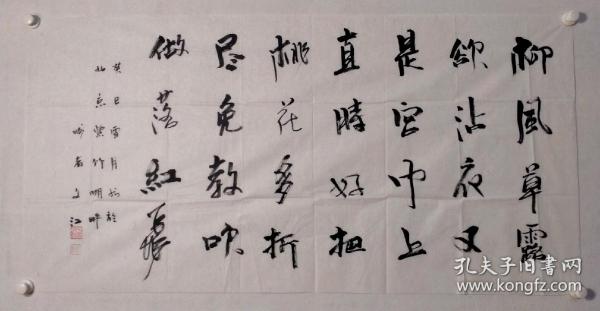 柳風草露
欲沾衣又
是宮中上
直時好把
桃花多折
尽免教吹
做落紅飛
癸巳雪月於
北京紫竹湖畔
文江
孔夫子旧书网
www.kongfz.com